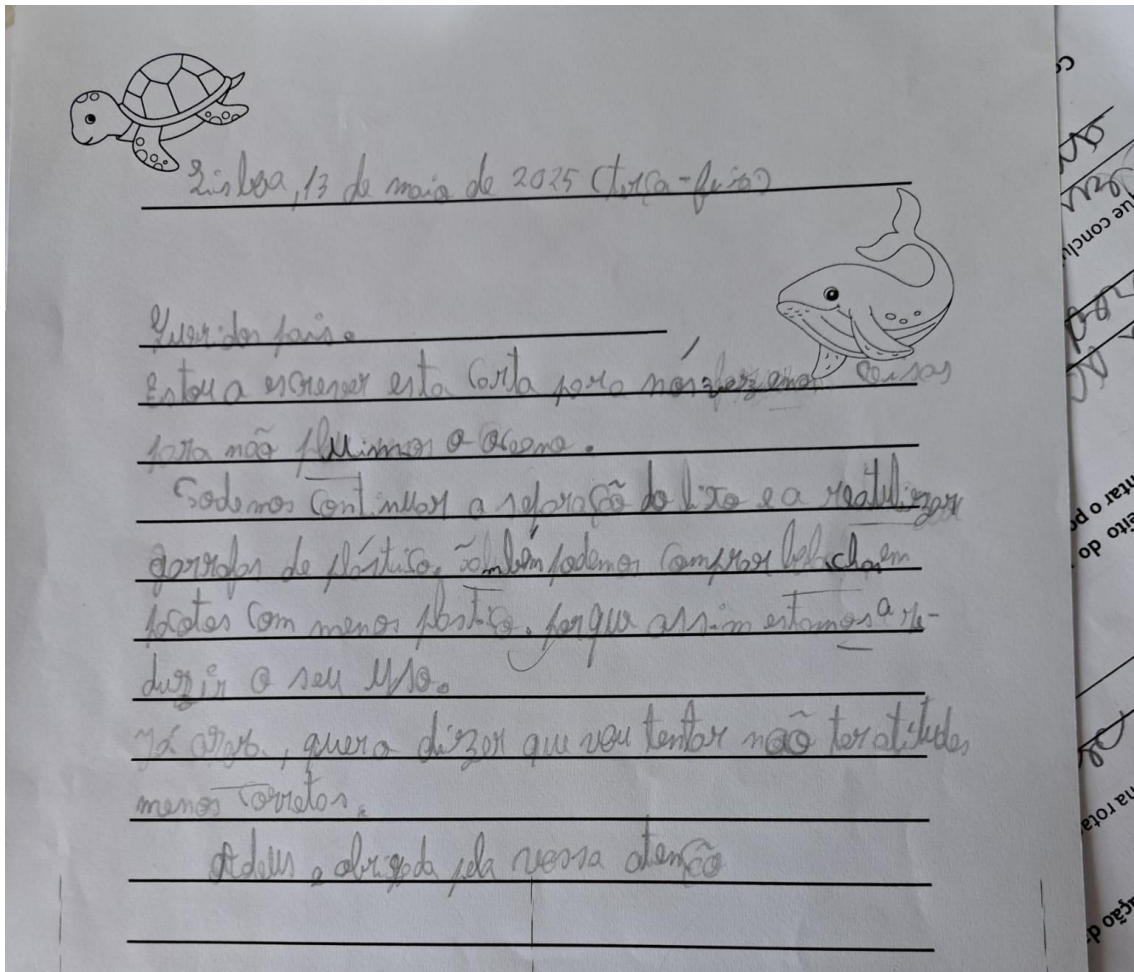 Lisboa, 13 de maio de 2025 (terça-feira)
Queridos pais.
Estou a escrever esta carta para nós fazermos coisas
para não poluirmos o oceano.
Podemos continuar a separação do lixo e a reatulizar
garrafas de plástico. também podemos comprar bolachas em
pacotes com menos plástico. porque assim estamos a re-
duzir o seu uso.
Já agora, quero dizer que vou tentar não ter atitudes
menos corretas.
Adeus e obrigada pela vossa atenção
ue conclu
ntar o po
eito do
na rota
ação d